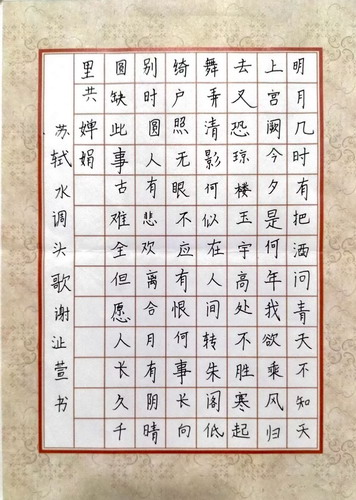 明月几时有把洒问青天不知天
上宫阙今夕是何年我欲乘风归
去又恐琼楼玉宇高处不胜寒起
舞弄清影何似在人间转朱阁低
绮户照无眼不应有恨何事长向
别时圆人有悲欢离合月有阴晴
圆缺此事古难全但愿人长久千
里共婵娟
苏轼水调头歌谢沚萱书